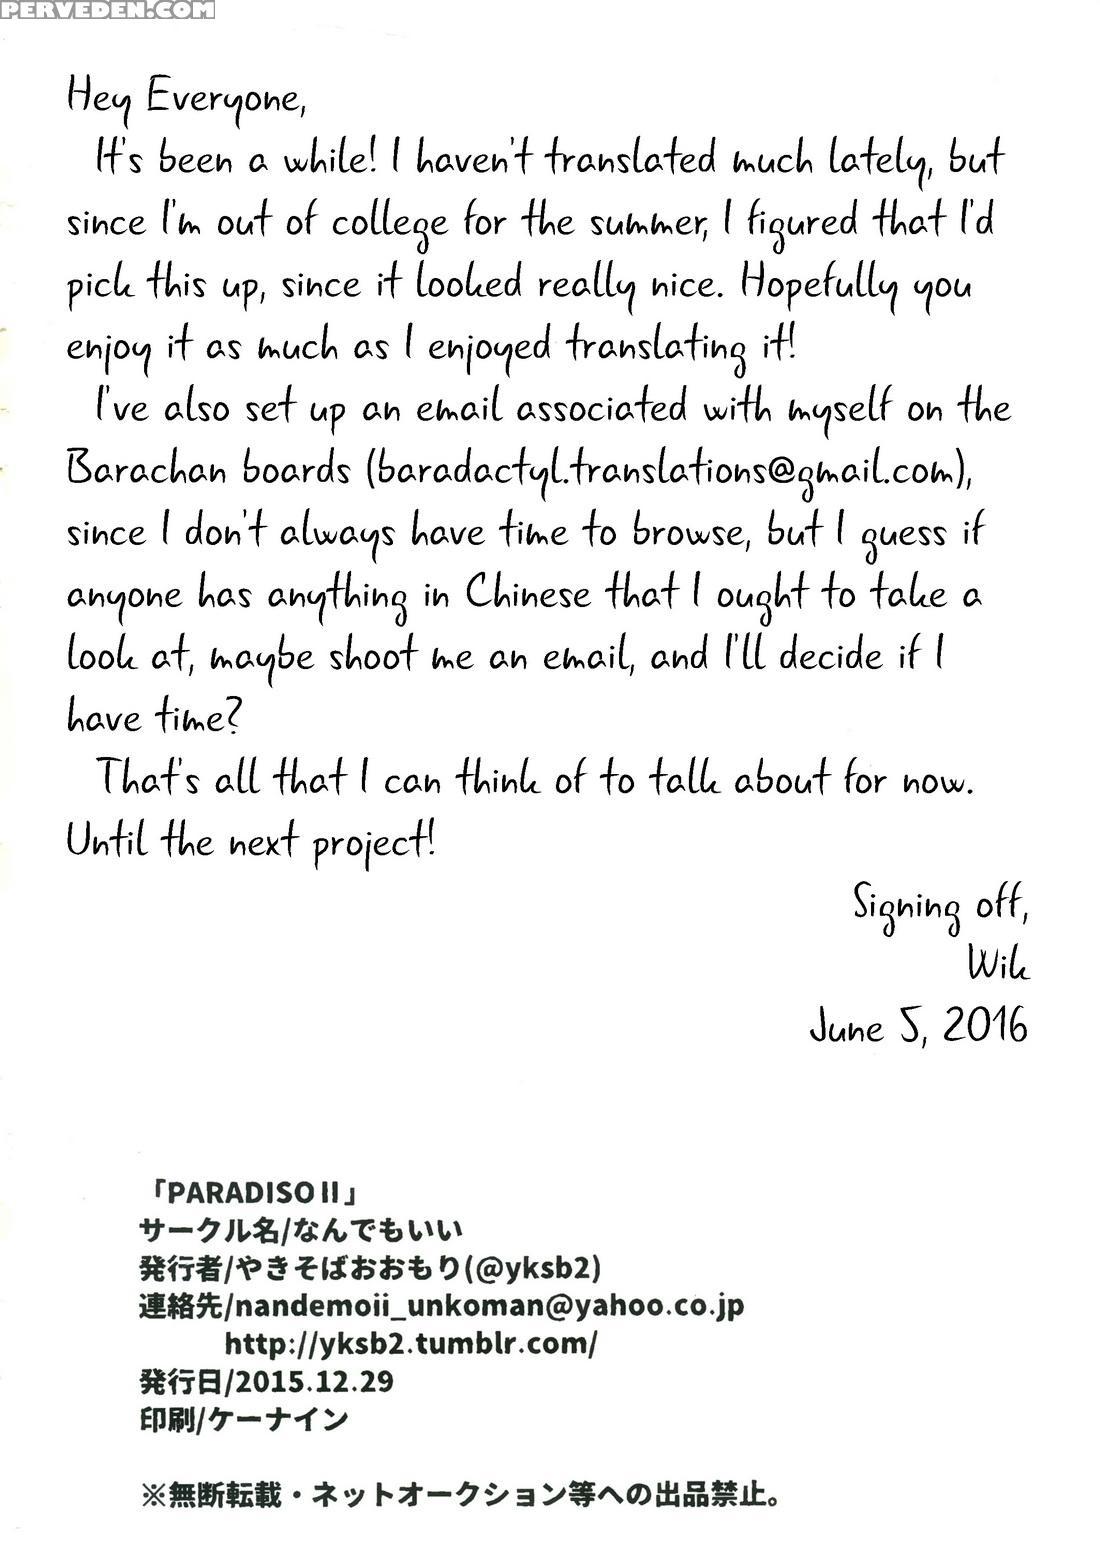 PERVEDEN.COM
Hey Everyone,
It's been a while! I haven't translated much lately, but
since I'm out of college for the summer, I figured that I'd
pick this up, since it looked really nice. Hopefully you
enjoy it as much as I enjoyed translating it!
I've also set up an email associated with myself on the
Barachan boards (baradactyl.translations@gmail.com),
since I don't always have time to browse, but I guess if
anyone has anything in Chinese that I ought to take a
look at, maybe shoot me an email, and I'll decide if I
have time?
That's all that I can think of to talk about for now.
Until the next project!
Signing off,
Wik
June 5, 2016
「PARADISO II」
サークル名/なんでもいい
発行者/やきそばおおもり(@yksb2)
連絡先/nandemoii_unkoman@yahoo.co.jp
http://yksb2.tumblr.com/
発行日/2015.12.29
印刷/ケーナイン
※無断転載・ネットオークション等への出品禁止。